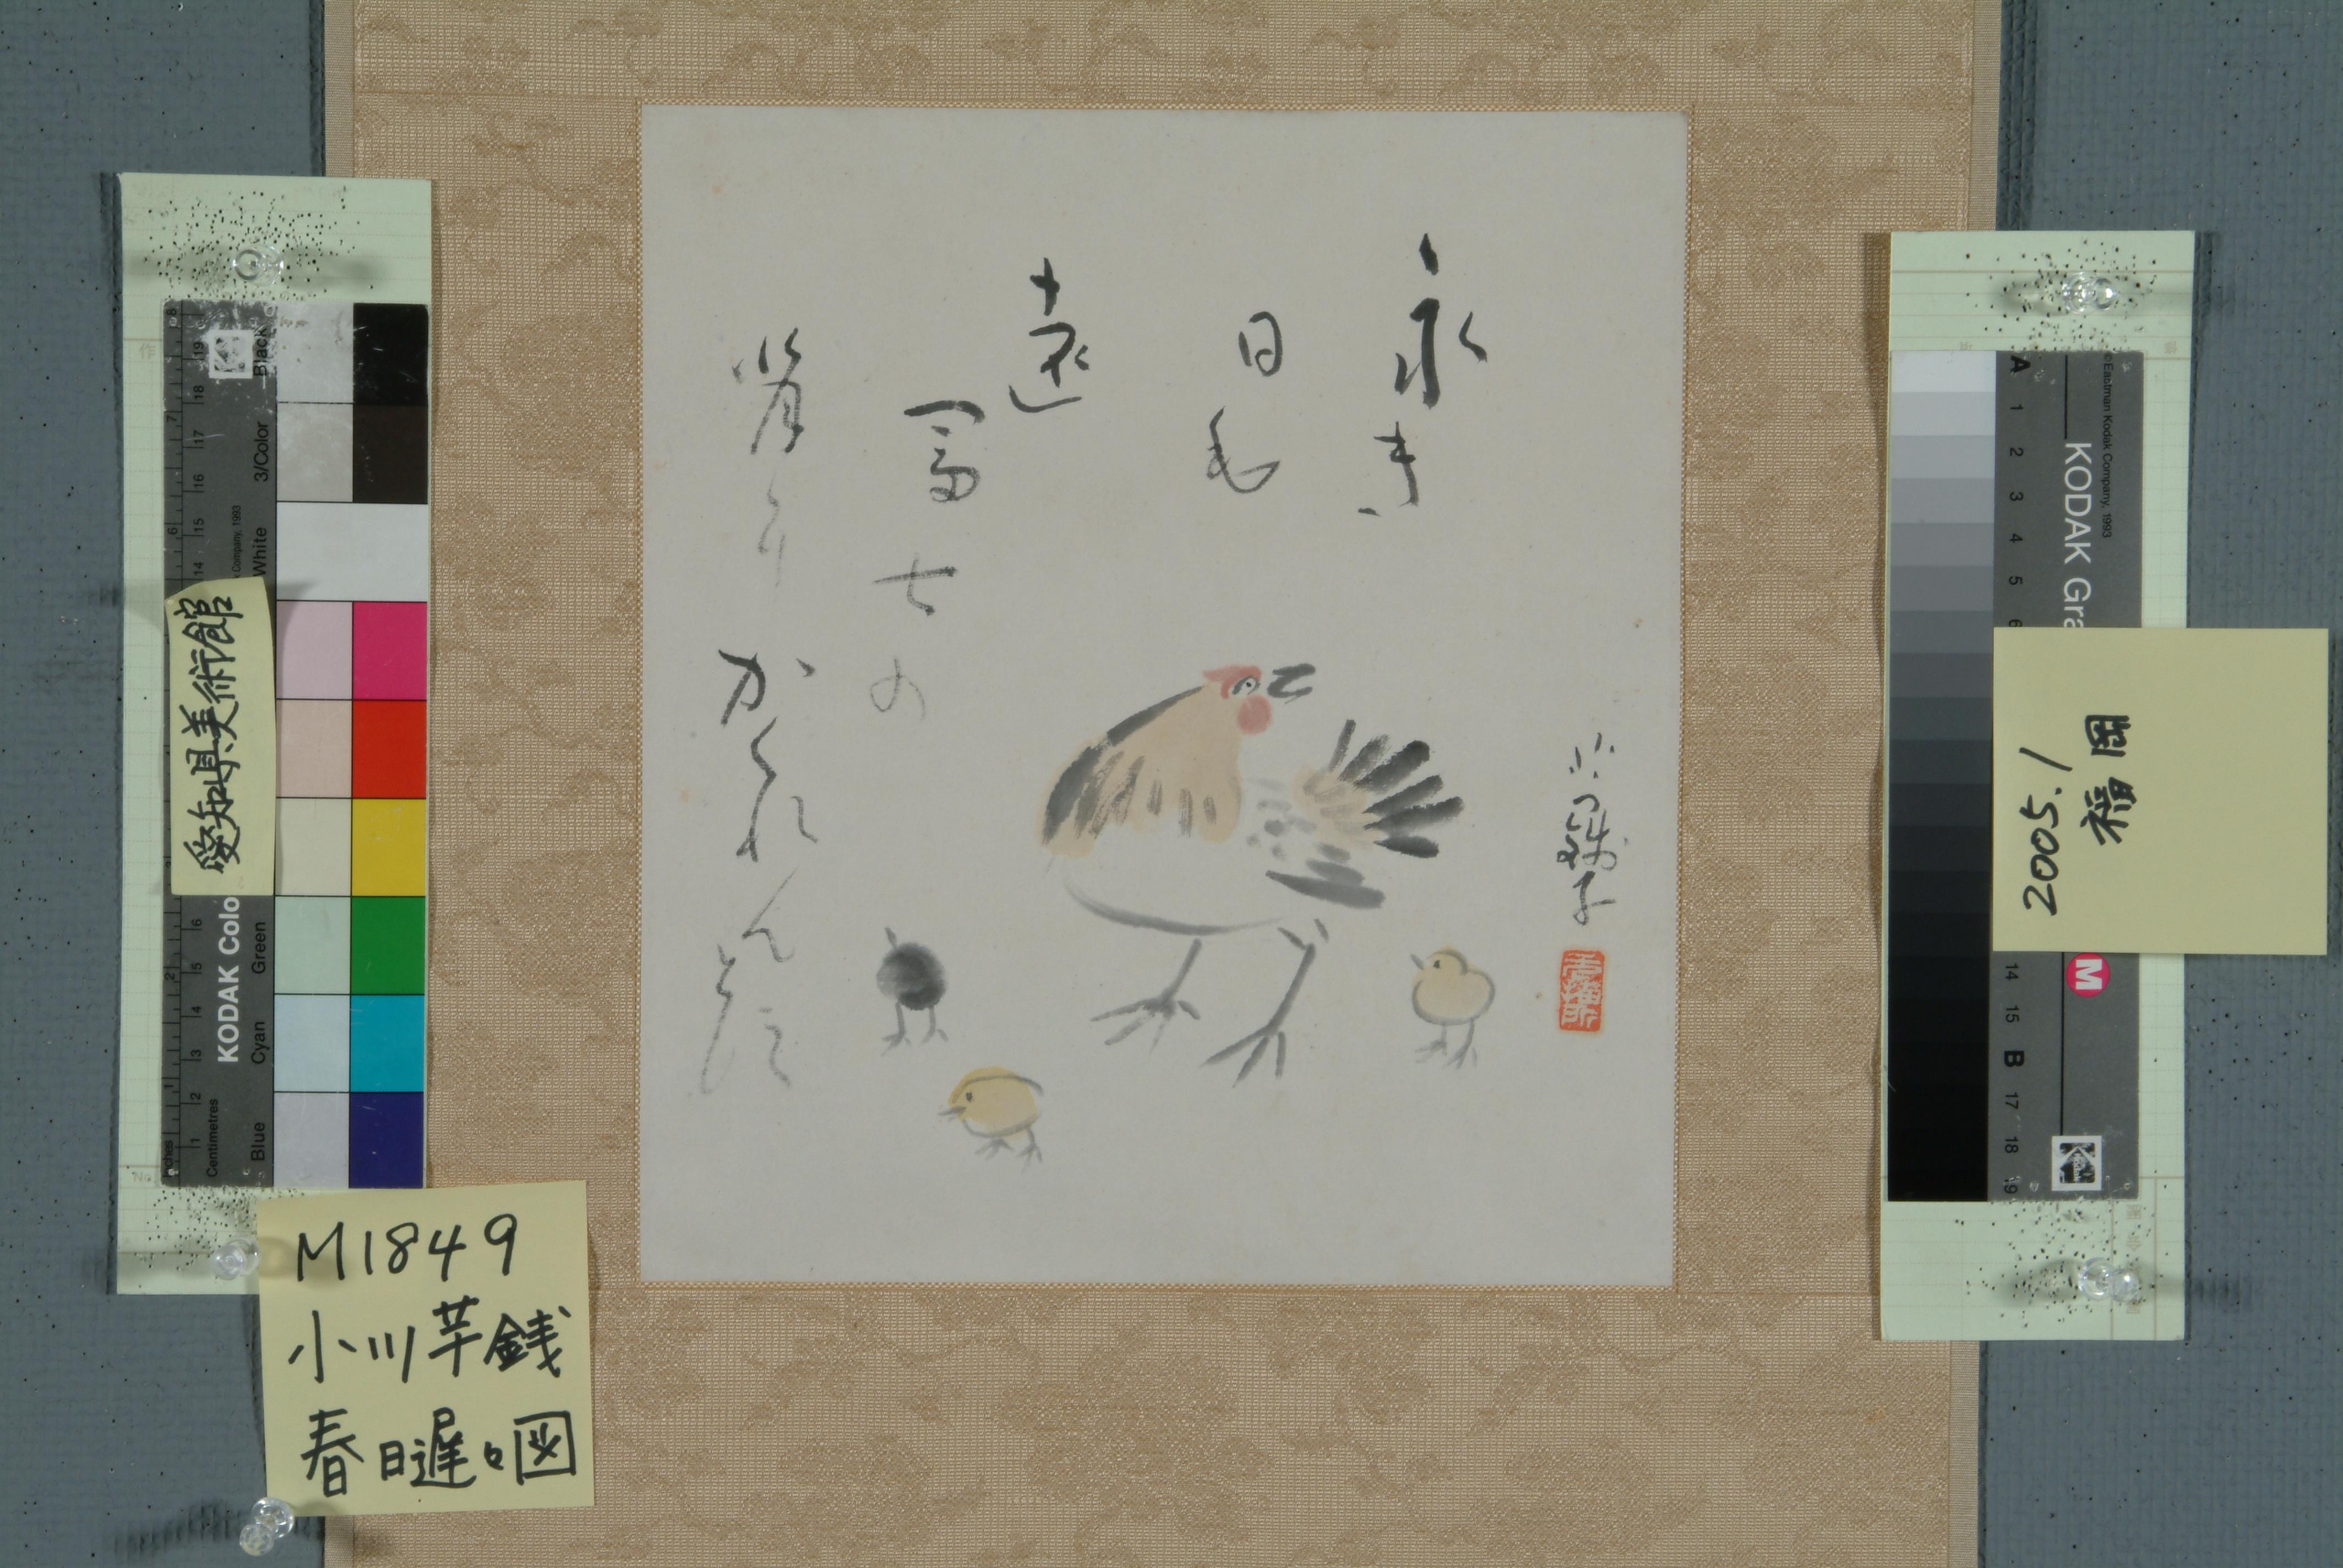 永き
日毛
遠
富士の
かくれ
芋銭子
愛知県美術館
M1849
小川芋銭
春日遅々図
2005.1
福岡
KODAK Colo
Company, 1993
Black
3/Color
White
Green
Cyan
Blue
Centimetres
Inches
© Eastman Kodak Company, 1993
KODAK Gra
A 1 2 3 4 5 6
M
14 15 B 17 18 19